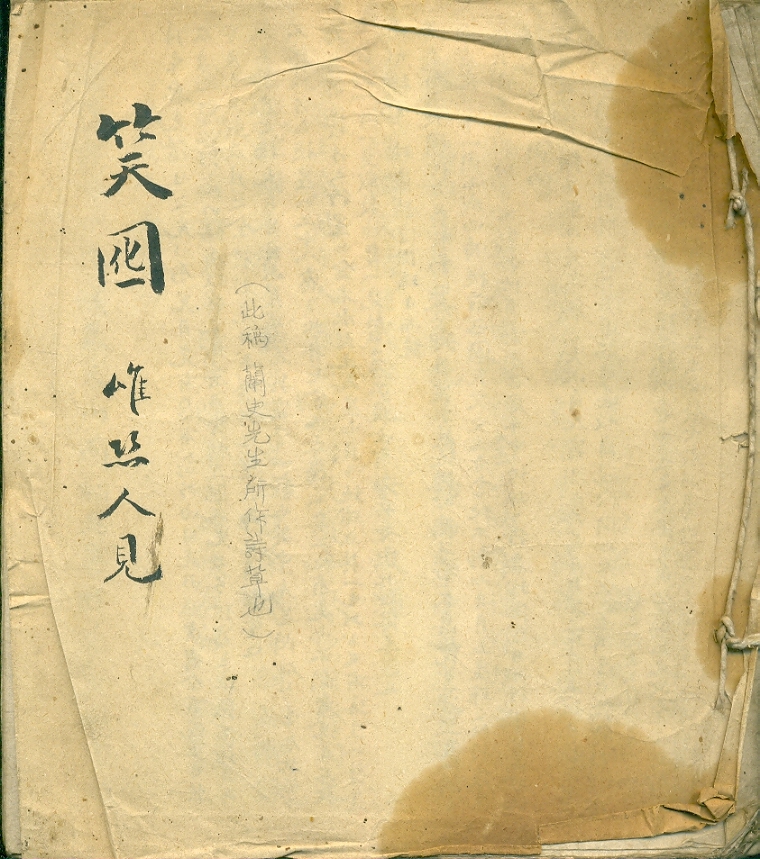 （此稿蘭史先生所作詩草也）
笑囮 唯恐人見